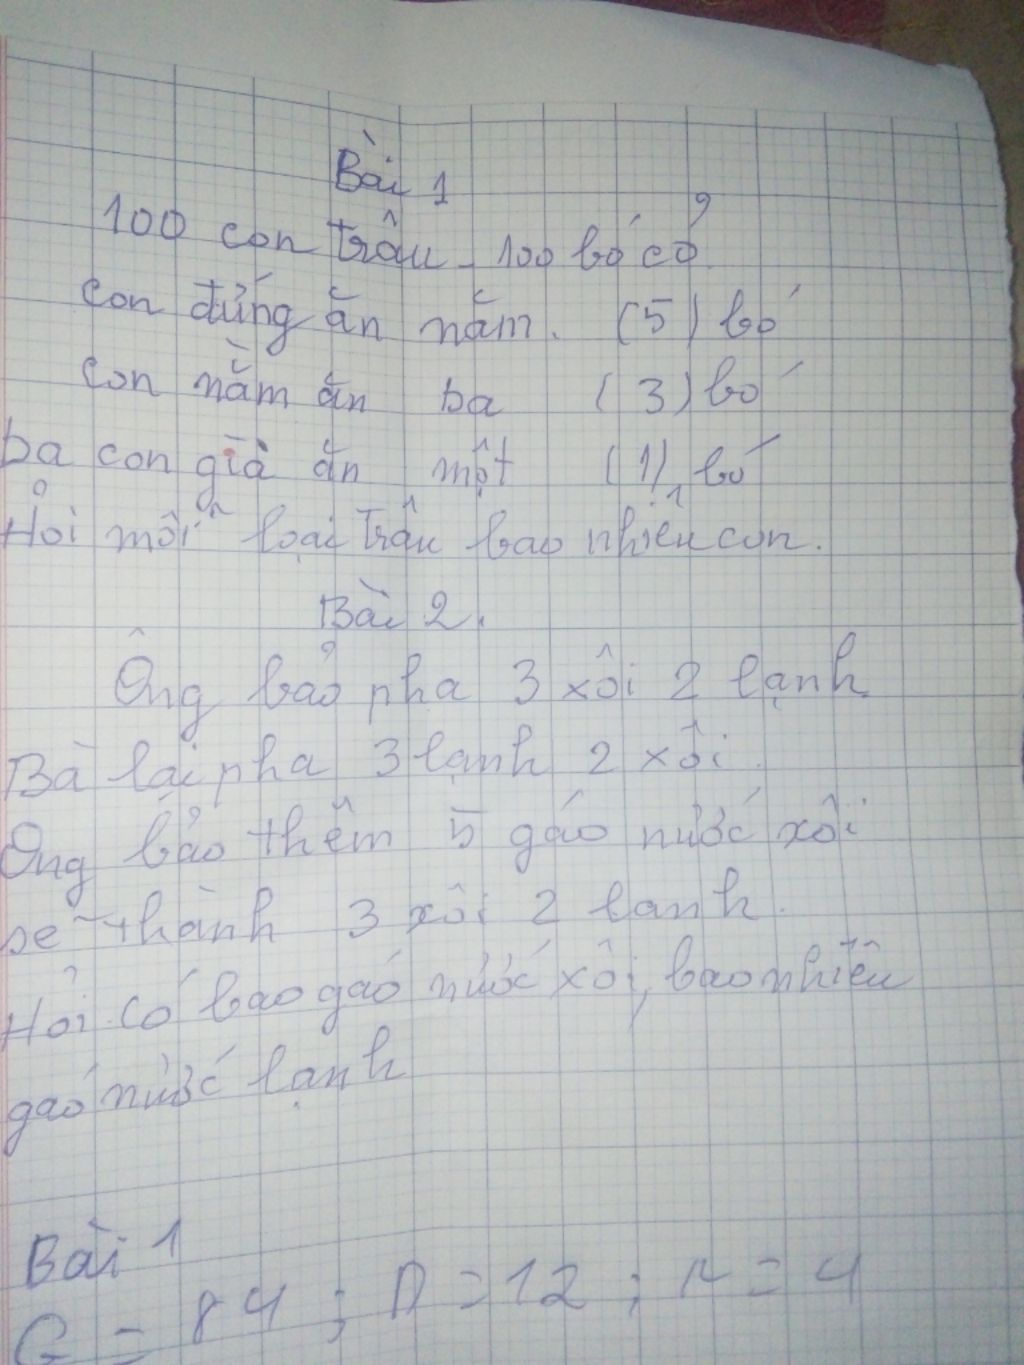 Bài 1
100 con trâu - 100 bó cỏ.
con đứng ăn năm. (5) bó
con nằm ăn ba (3) bó
ba con già ăn một (1) bó
Hỏi mỗi loại trâu bao nhiêu con.
Bài 2.
Ông bảo pha 3 xôi 2 lạnh
Bà lại pha 3 lạnh 2 xôi.
Ông bảo thêm 5 gáo nước xôi
sẽ thành 3 xôi 2 lanh.
Hỏi có bao gáo nước xôi, bao nhiêu
gáo nước lạnh
Bài 1
G = 84 ; Đ = 12 ; N = 4